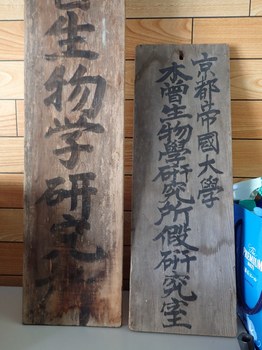 京都帝國大學
木曾生物學研究所假研究室
曾生物学研究所
PREMIUM